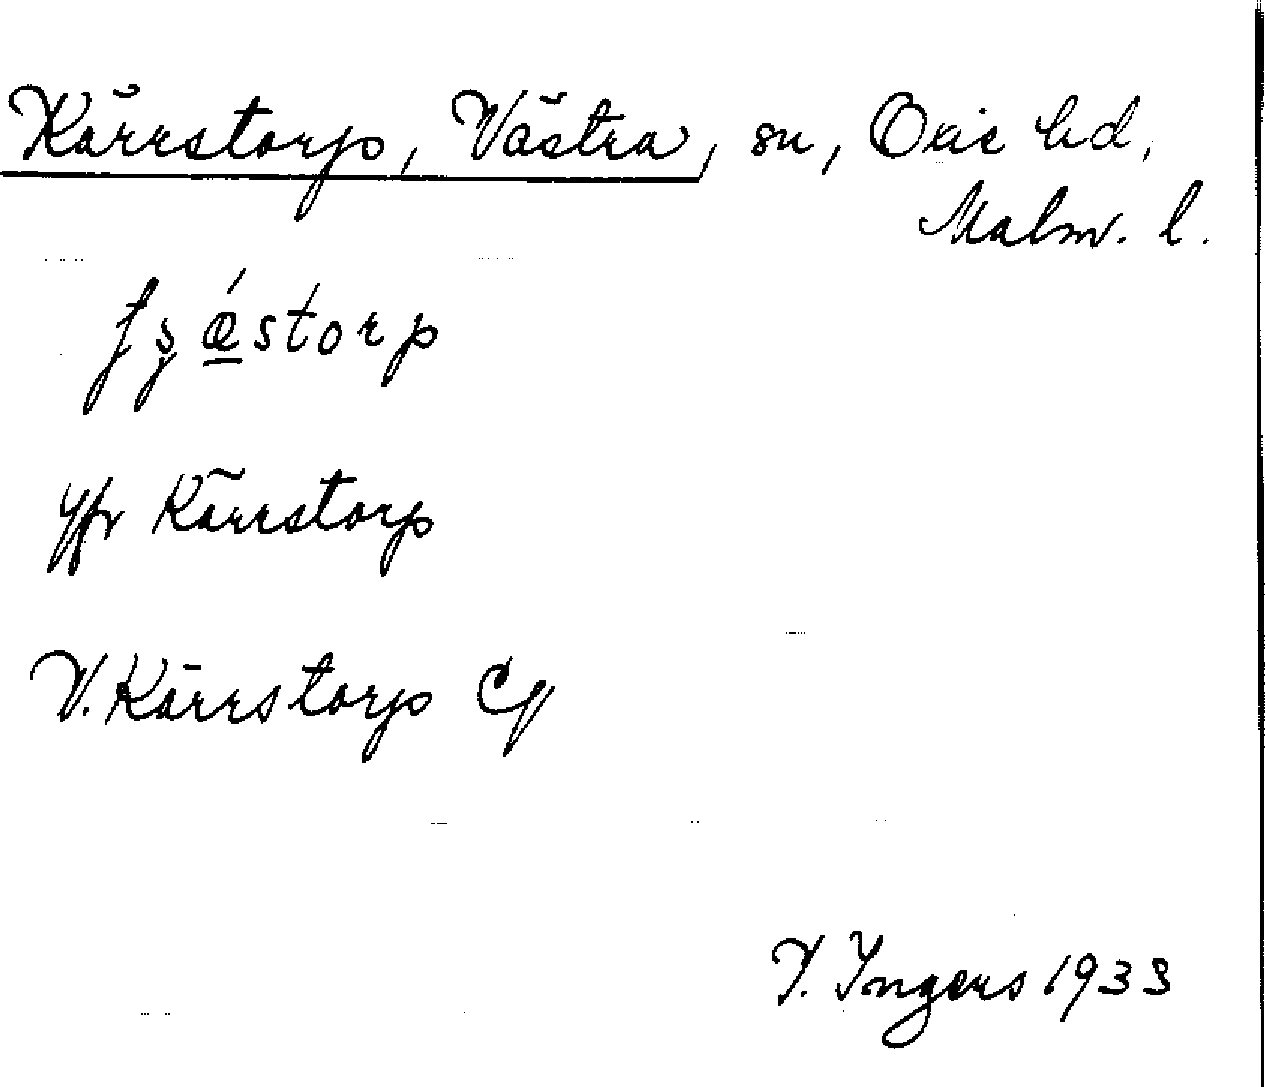 Kärrstorp, Västra, sn, Oxie hd,
Malm. l.
Kärrstorp
V. Kärrstorp
I. Ingers 1933